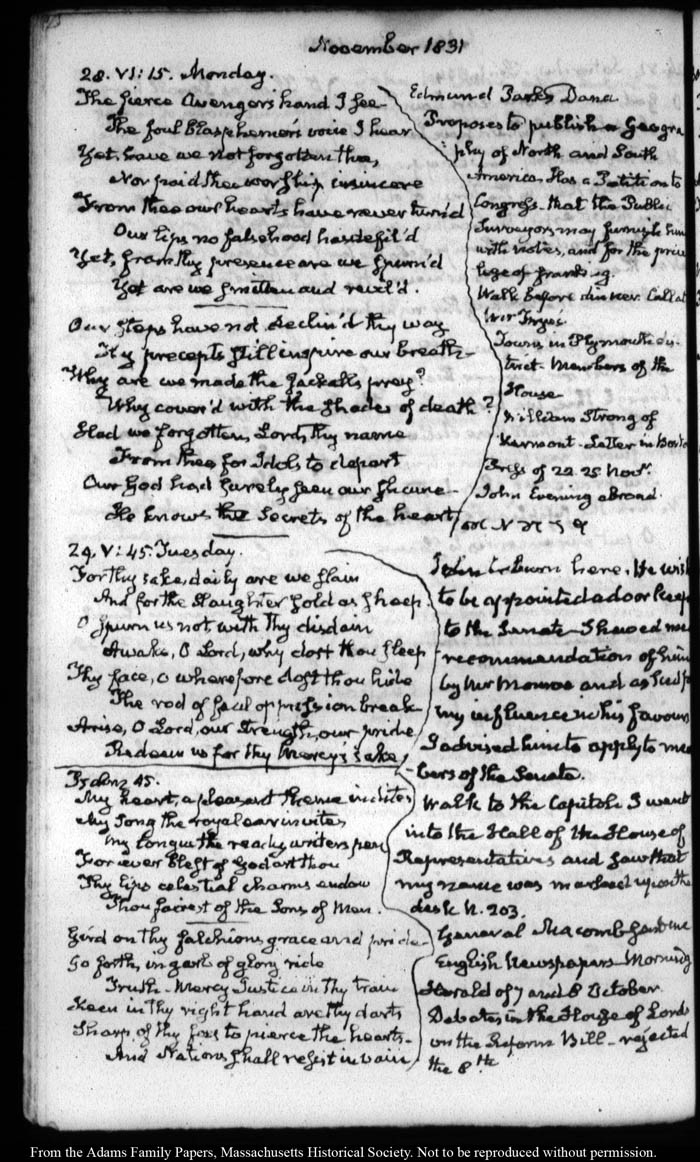 November 1831
28. VI: 15. Monday.
The fierce Avenger's hand I see
The foul blasphemer's voice I hear
Yet, have we not forgotten thee,
Nor paid thee worship insincere
From thee our hearts have never turn'd
Our lips no falsehood has defil'd
Yet, from thy presence are we spurn'd
Yet are we smitten and revil'd.
Our steps have not declin'd thy way
Thy precepts still inspire our breath
Why are we made the Jackalls prey?
Why cover'd with the shades of death?
Had we forgotten, Lord, thy name
From thee for Idols to depart
Our God had surely seen our shame
He knows the Secrets of the heart
Edmund Parks Dana
Proposes to publish a Geogra
phy of North and South
America. Has a Petition to
Congress that the Public
Surveyors may furnish him
with notes, and for the privi
lege of franking.
Walk before dinner. Call at
Mr Frye's.
Towns in Plymouth dis-
trict. Members of the
House
William Strong of
Vermont. Letter in Boston
Press of 22. 25 Novr.
John Evening abroad.
29. V: 45. Tuesday.
For thy sake, daily are we slain
And for the slaughter sold as sheep.
O spurn us not, with thy disdain
Awake, O Lord, why dost thou sleep
Thy face, O wherefore dost thou hide
The rod of foul oppression break
Arise, O Lord, our strength, our pride
Redeem us for thy Mercy's sake,
Psalm 45.
My heart, a pleasant theme indites
My Song the royal ear invites
My tongue the ready writers pen
For ever blest of God art thou
Thy lips celestial charms endow
Thou fairest of the Sons of Men.
Gird on thy falchion, grace and pride
Go forth, in garb of glory ride
Truth - Mercy Justice in thy train
Keen in thy right hand are thy darts
Sharp, of thy foes to pierce the hearts.
And Nations shall resist in vain
here. He wish
to be appointed a door keep
to the Senate - Shewed me
recommendation of him
by Mr Monroe and
my influence in his favour
I advised him to apply to mem
bers of the Senate.
Walk to the Capitol. I went
into the Hall of the House of
Representatives and saw that
my name was marked upon the
desk N. 203.
General Macomb sent me
English Newspapers - Morning
Herald of 7 and 8 October.
Debates in the House of Lords
on the Reform Bill - rejected
the 8th
From the Adams Family Papers, Massachusetts Historical Society. Not to be reproduced without permission.